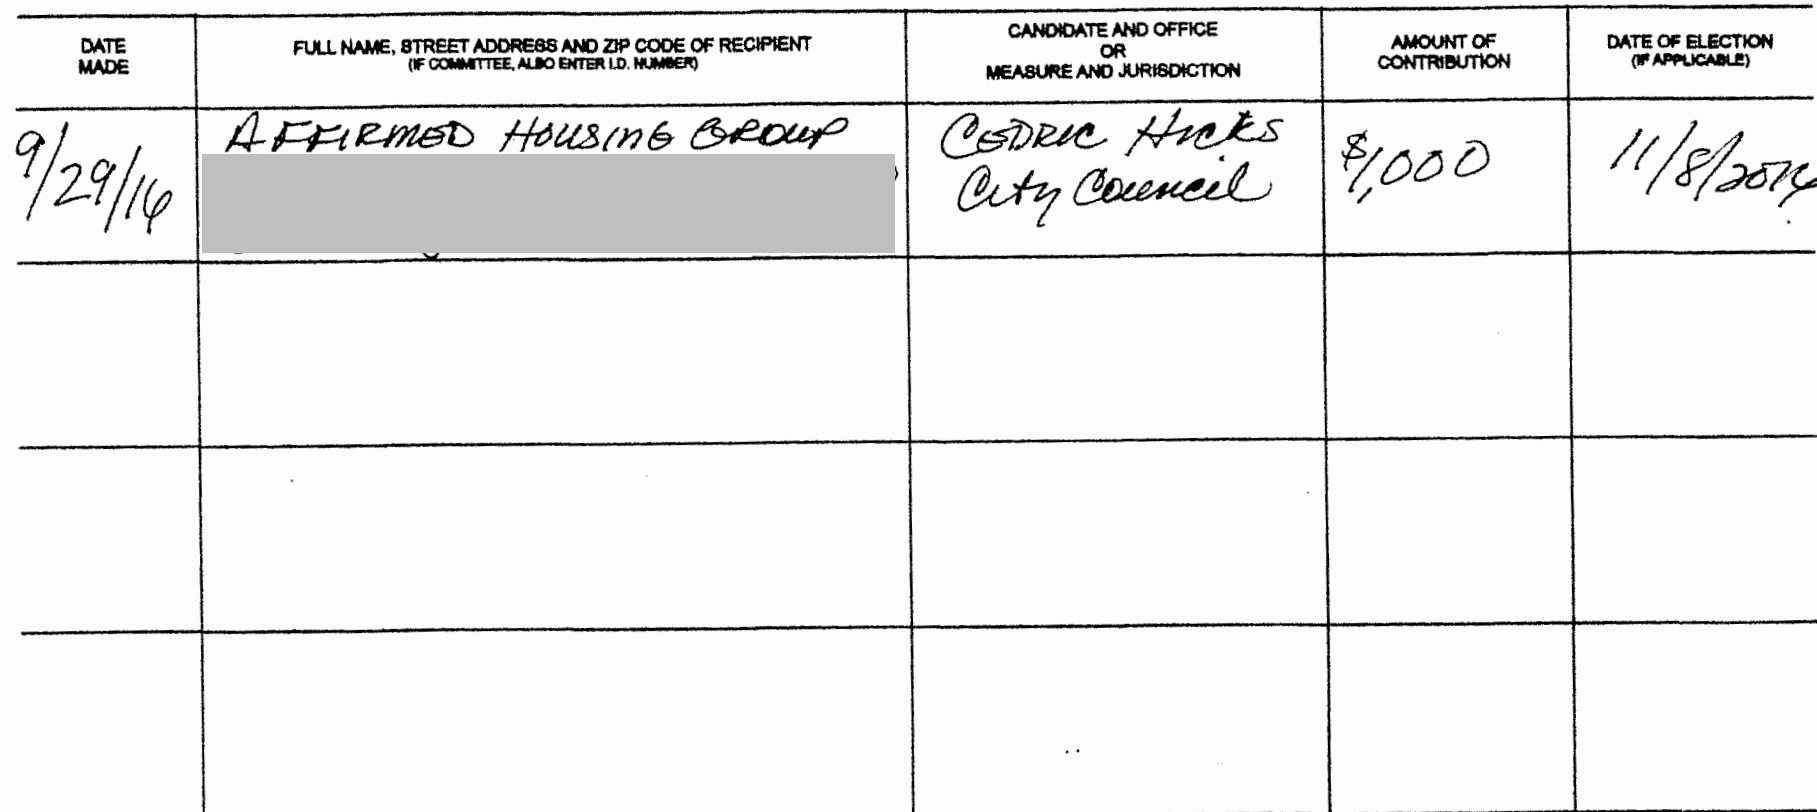 DATE MADE
FULL NAME, STREET ADDRESS AND ZIP CODE OF RECIPIENT
(IF COMMITTEE, ALSO ENTER I.D. NUMBER)
CANDIDATE AND OFFICE
OR
MEASURE AND JURISDICTION
AMOUNT OF
CONTRIBUTION
DATE OF ELECTION
(IF APPLICABLE)
9/29/16
AFFIRMED HOUSING GROUP
CEDRIC HICKS
City Council
$1,000
11/8/2016